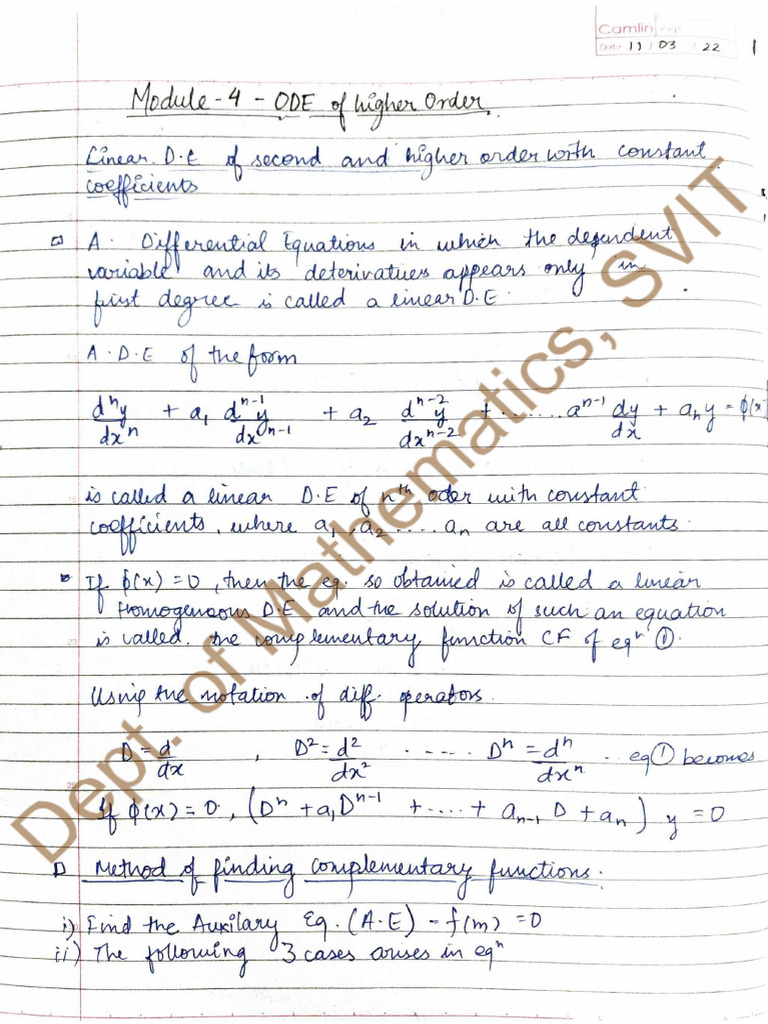 Camlin Page
Date 11 / 03 / 22
1
Module - 4 - ODE of higher Order.
Linear D.E of second and higher order with constant
coefficients
A. Differential Equations in which the dependent
variable and its deterivatues appears only in
first degree is called a linear D.E.
A.D.E of the form
dⁿy/dxⁿ + a₁ dⁿ⁻¹y/dxⁿ⁻¹ + a₂ dⁿ⁻²y/dxⁿ⁻² + ....... aⁿ⁻¹ dy/dx + aₙy = ϕ(x)
is called a linear D.E of nᵗʰ oder with constant
coefficients, where a₁, a₂ .... aₙ are all constants.
If ϕ(x) = 0, then the eq. so obtained is called a linear
Homogeneous D.E and the solution of such an equation
is called. the complementary function CF of eqⁿ ①.
Using the notation of diff. operators.
D = d/dx , D² = d²/dx² ..... Dⁿ = dⁿ/dxⁿ .. eq ① becomes
If ϕ(x) = 0, (Dⁿ + a₁Dⁿ⁻¹ + .... + aₙ₋₁ D + aₙ) y = 0
Method of finding complementary functions.
i) Find the Auxilary Eq. (A.E) - f(m) = 0
ii) The following 3 cases arises in eqⁿ
Dept. of Mathematics, SVIT